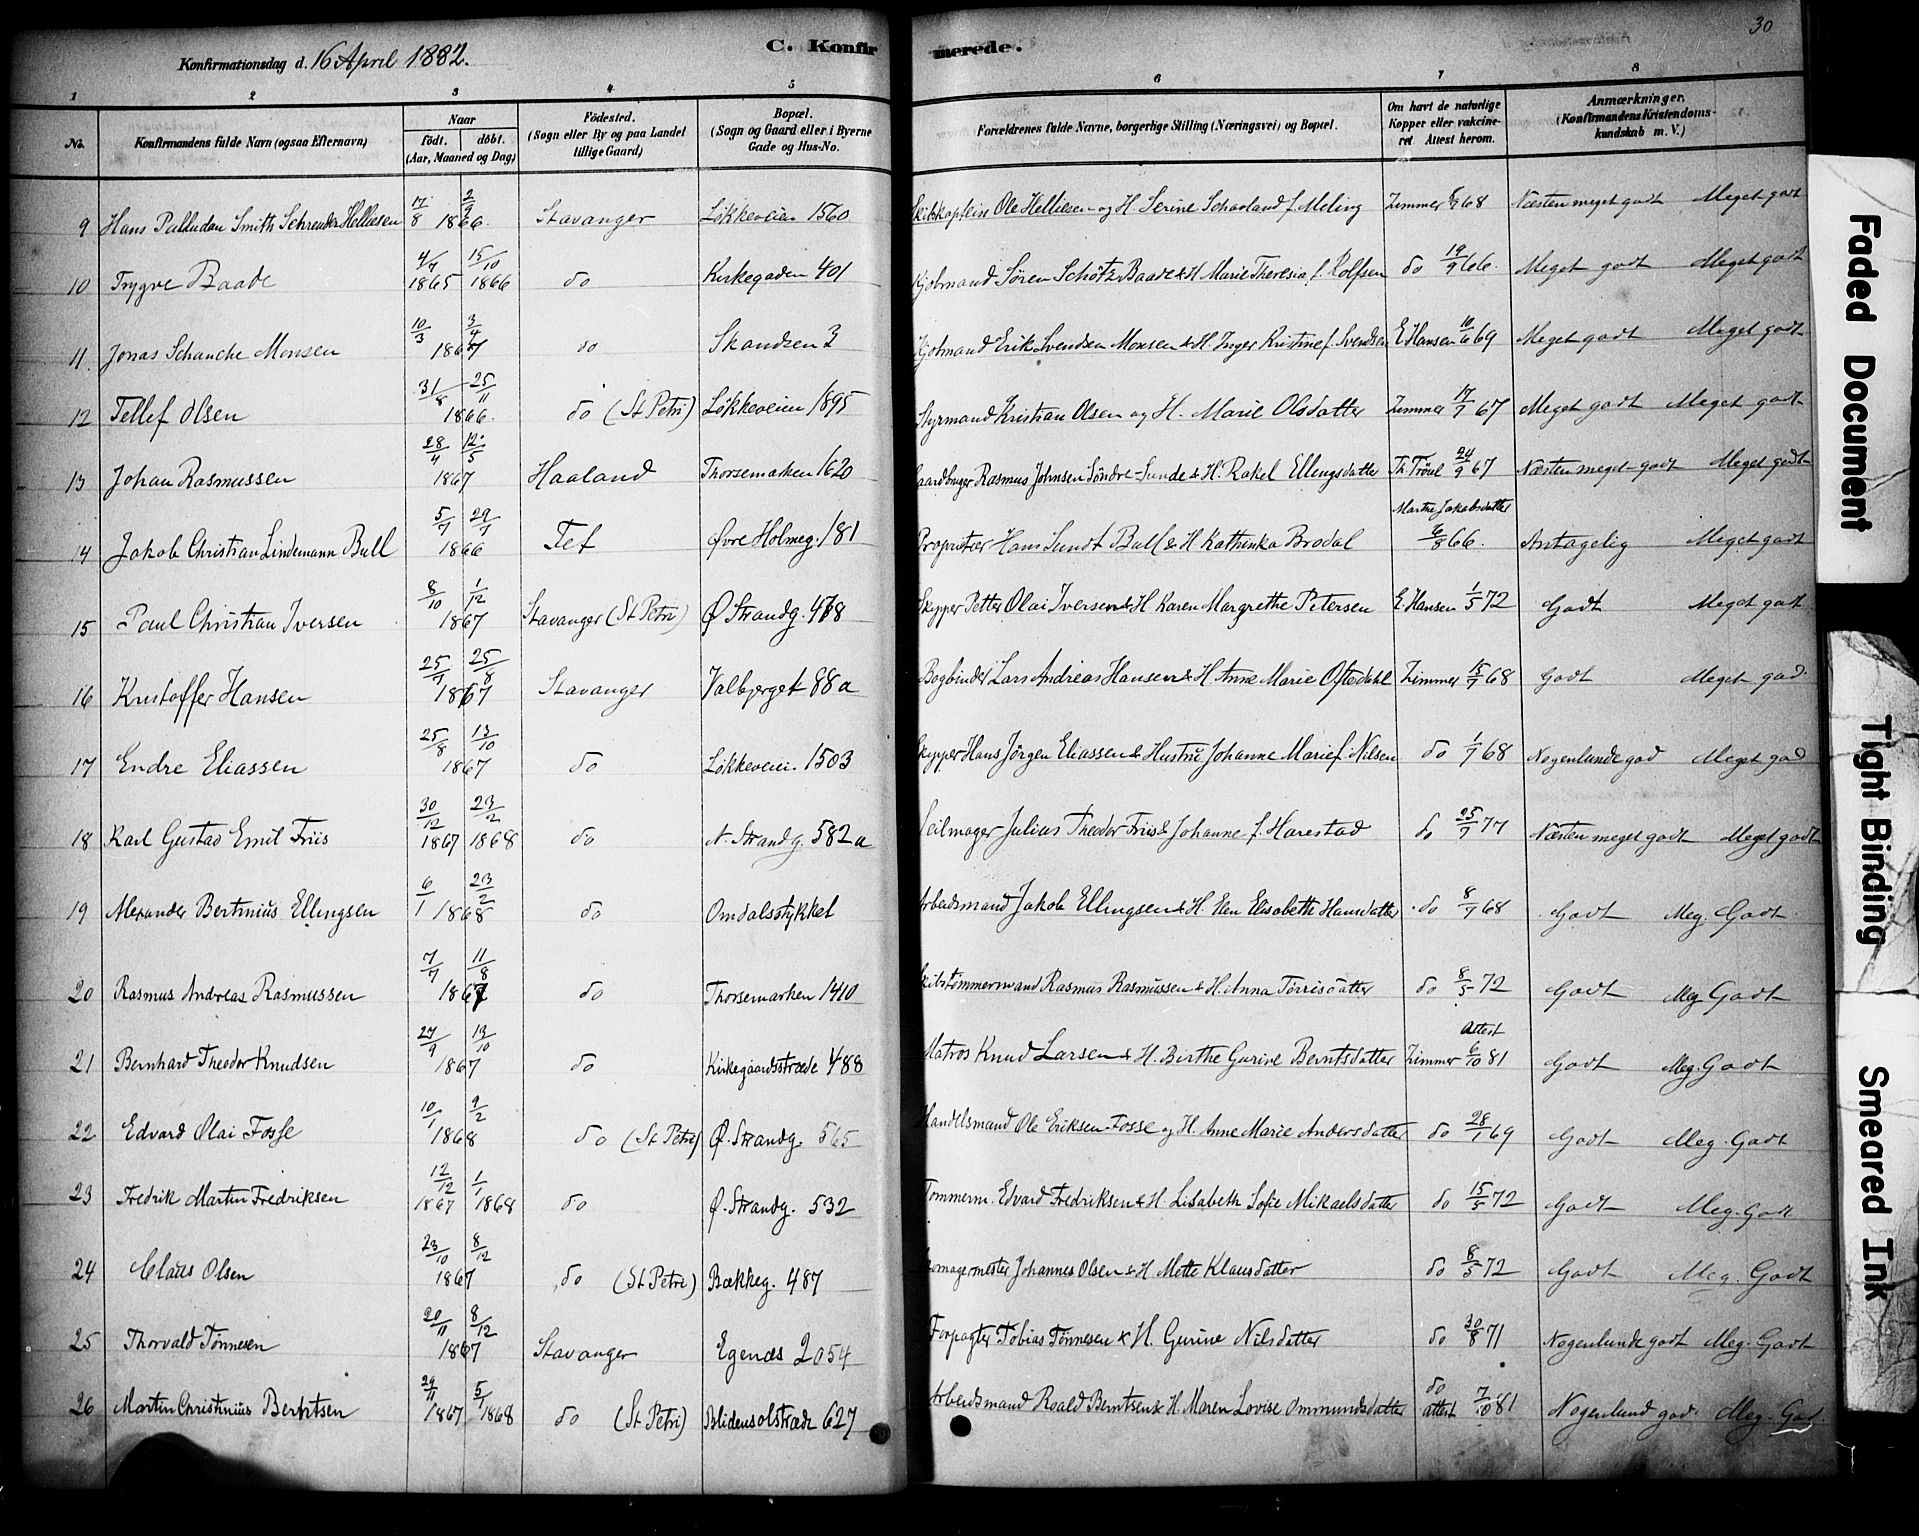 30
Konfirmationsdag d. 16 April 1882.
C. Konfirmerede.
1 2 3 4 5 6 7 8
No.
Konfirmandens fulde Navn (ogsaa Efternavn)
Naar
født. døbt.
(Aar, Maaned og Dag)
Fødested.
(Sogn eller By og paa Landet
tillige Gaard)
Bopæl.
(Sogn og Gaard eller i Byerne
Gade og Hus-No.
Forældrenes fulde Navne, borgerlige Stilling (Næringsvei) og Bopæl.
Om havt de naturlige
Kopper eller vakcine-
ret Attest herom.
Anmærkninger.
(Konfirmandens Kristendoms-
kundskab m. V.)
9 Hans Palludan Smith Schreuder Helliesen 17/8 2/9 1866. Stavanger Løkkeveien 1560 Skibskaptein Ole Helliesen og H. Serine Schaaland f. Meling Zimmer 68 Næsten meget godt Meget godt
10 Trygve Baade 4/7 1865 15/10 1866 do Kirkegaden 401 Kjøbmand Søren Schøtz Baade & H. Marie Theresia f. Rolfsen do 19/9 66. Meget godt Meget godt
11 Jonas Schanche Monsen 10/3 3/4 1867 do Skandsen 3 Kjøbmand Erik Svendsen Monsen & H. Inger Kristine f. Svendsen E Hansen 10/6 69 Meget godt Meget godt
12 Tellef Olsen 31/8 25/11 1866. do (St Petri) Løkkeveien 1895 Styrmand Kristian Olsen og H. Marie Olsdatter Zimmer 17/7 67 Meget godt Meget godt
13 Johan Rasmussen 28/4 12/5 1867 Haaland Thorsemarken 1620 Gaardbruger Rasmus Johnsen Søndre Sunde & H. Rakel Ellingsdatter 24/9 67 Næsten meget godt Meget godt
14 Jakob Christian Lindemann Bull 5/7 29/7 1866 Tet Øvre Holmeg. 181 Proprietær Hans Sundt Bull & H. Kathinka Brodal Marthe Jakobsdatter 6/8 66. Antagelig Meget godt
15 Paul Christian Iversen 8/10 1/12 1867 Stavanger (St Petri) Ø Strandg. 478 Skipper Petter Olai Iversen & H. Karen Margrethe Petersen E. Hansen 1/5 72 Godt Meget godt
16 Kristoffer Hansen 25/7 25/8 1867 Stavanger Valbjerget 88a Bogbinder Lars Andreas Hansen & H. Anne Marie Oftedahl Zimmer 15/7 68 Godt Meget god
17 Endre Eliassen 25/8 13/10 1867 do Løkkeveien. 1503 Skipper Hans Jørgen Eliassen & Hustru Johanne Marie f. Nilsen do 1/7 68 Nogenlunde god Meget god
18 Karl Gustav Emil Friis 30/12 1867 23/2 1868 do N. Strandg. 582a Seilmager Julius Theodor Friis & Johanne f. Harestad do 25/7 77 Næsten meget godt Meget godt
19 Alexander Bertinius Ellingsen 6/1 23/2 1868 do Omdalsstykket Arbeidsmand Jakob Ellingsen & H. Elen Elisabeth Hansdatter do 8/7 68 Godt Meg. Godt
20 Rasmus Andreas Rasmussen 7/7 11/8 1867 do Thorsemarken 1410 Skibstømmermand Rasmus Rasmussen & H. Anna Tørrisdatter do 8/5 72 Godt Meg Godt
21 Bernhard Theodor Knudsen 27/9 13/10 1867 do Kirkegaardsstræde 488 Matros Knud Larsen & H. Birthe Gurine Berntsdatter Zimmer Attest 6/10 81 Godt Meg. Godt
22 Edvard Olai Fosse 10/1 9/2 1868 do (St Petri) Ø. Strandg. 565 Handelsmand Ole Eriksen Fosse og H. Anne Marie Andersdatter do 28/1 69 Godt Meg. Godt
23 Fredrik Martin Fredriksen 12/12 1867 1/1 1868 do Ø. Strandg. 532 Tømmerm. Edvard Fredriksen & H. Lisabeth Sofie Mikaelsdatter do 15/5 72 Godt Meg. Godt
24 Claus Olsen 23/10 8/12 1867 do (St Petri) Bækkeg. 487 Skomagermester Johannes Olsen & H. Mette Klausdatter do 8/5 72 Godt Meg. Godt
25 Thorvald Tønnesen 20/11 8/12 1867 Stavanger Egenæs 2054 Forpagter Tobias Tønnesen & H. Gurine Nilsdatter do 30/8 71 Nogenlunde godt Meg. Godt
26 Martin Christinius Berntsen 29/11 1867 5/1 1868 do (St Petri) Blidensolstræde 627 Arbeidsmand Roald Berntsen & H. Maren Lovise Ommundsdatter do attest 7/10 81 Nogenlund god. Meg. God.
Faded Document
Tight Binding
Smeared Ink